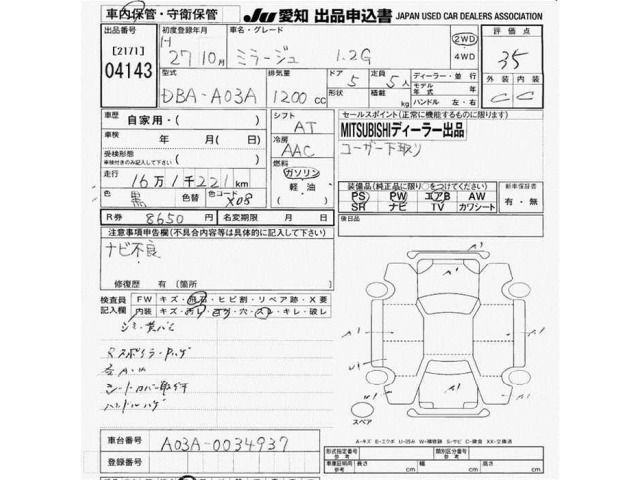 車内保管・守衛保管
JU 愛知 出品申込書 JAPAN USED CAR DEALERS ASSOCIATION
出品番号 初度登録年月 車名・グレード 評価点
[2171] H 27 10月 ミラージュ 1.2G 2WD 4WD 35
04143
型式 排気量 ドア 定員 ディーラー・並行 外装 内装
DBA-A03A 1200cc 5 5人 モデル年式 C C
形状 積載 kg ハンドル 左・右
車歴 自家用・( ) シフト AT
セールスポイント(正常に機能するものに限ります)
MITSUBISHIディーラー出品
ユーザー下取り
車検 年 月( 日) 冷房 AAC
受検形態 車検付きのみ記入して下さい ( )
燃料 ガソリン 軽油 ( )
走行 16万1千221km
色 黒 色替 色コード X08
装備品(純正品に限り○をつけてください) 新車保証書
PS PW エアB AW 有・無
SR ナビ TV カワシート
R券 8650円 名変期限 月 日
後日品
注意事項申告欄(不具合内容等は具体的に記入して下さい)
ナビ不良
修復歴 有 (箇所 )
検査員記入欄 FW キズ・飛石・ヒビ割・リペア跡・X要
内装 キズ・汚レ・コゲ・穴・スレ・キレ・破レ
シートカバー取付
ハンドルハゲ
A1
スペア
A-キズ E-エクボ U-凹み W-補修跡 S-サビ C-腐食 XX-交換済
車台番号 A03A-0034937
登録番号
形式指定番号 参考 類別区分番号 参考
車庫証明用 参考 長さ cm 幅 cm 高さ cm